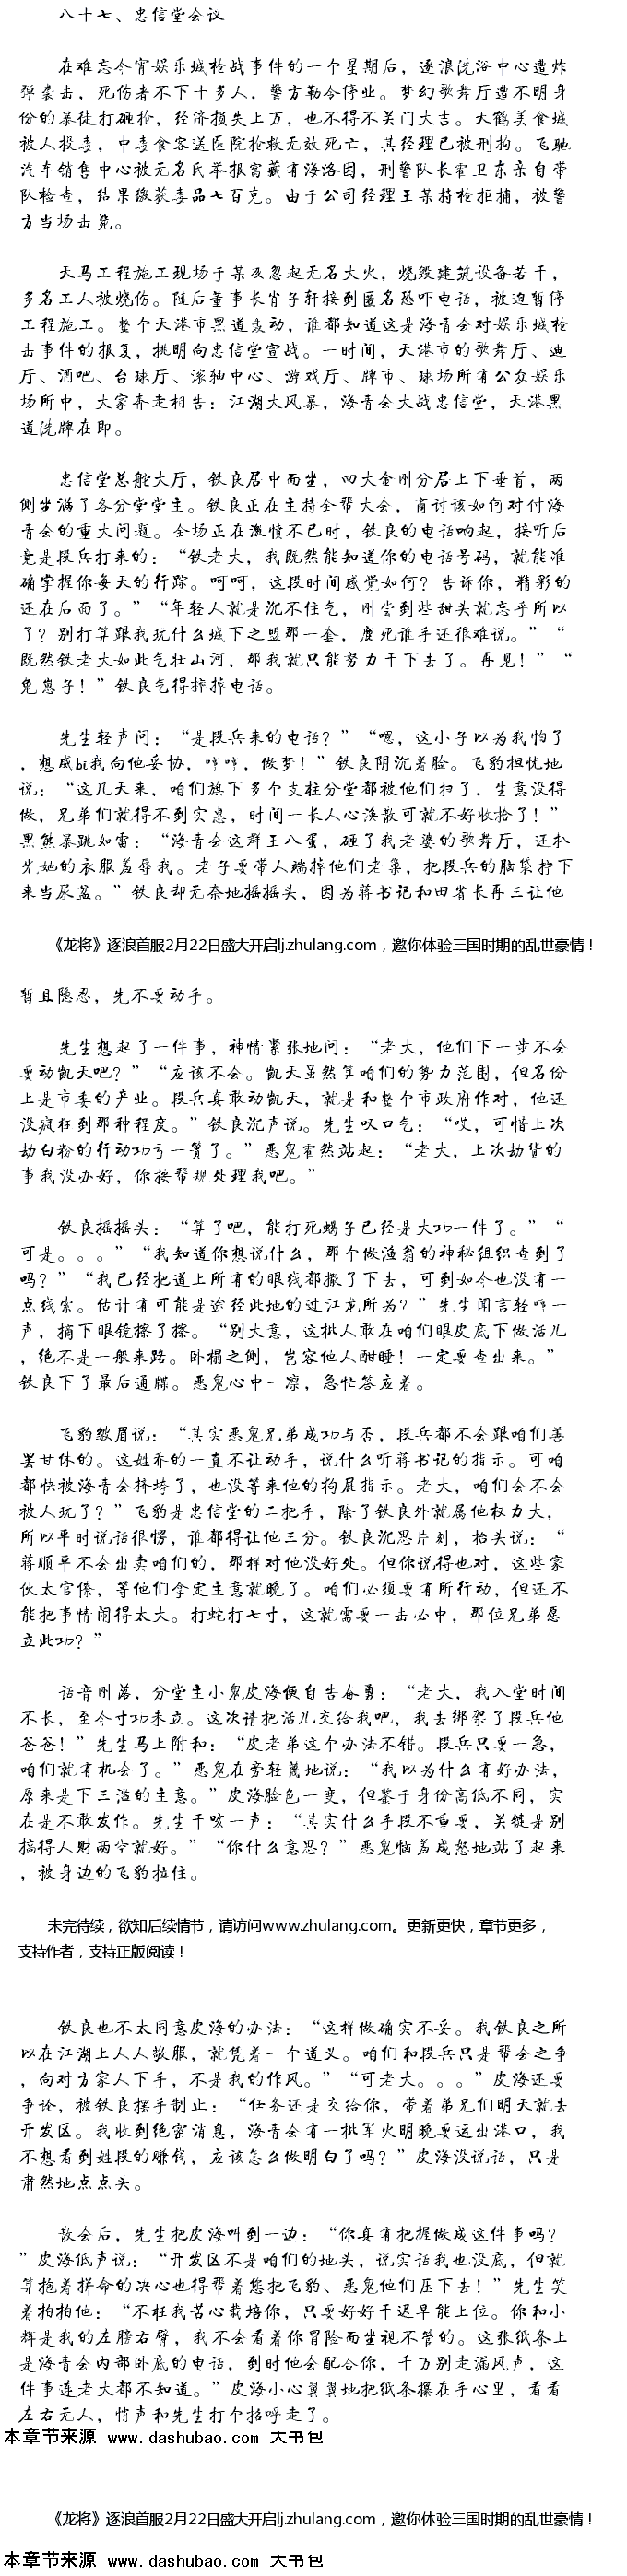 八十七、忠信堂会议
在难忘今宵娱乐城枪战事件的一个星期后，逐浪洗浴中心遭炸
弹袭击，死伤者不下十多人，警方勒令停业。梦幻歌舞厅遭不明身
份的暴徒打砸抢，经济损失上万，也不得不关门大吉。天鹤美食城
被人投毒，中毒食客送医院抢救无效死亡，其经理已被刑拘。飞驰
汽车销售中心被无名氏举报窝藏有海洛因，刑警队长霍卫东亲自带
队检查，结果缴获毒品七百克。由于公司经理王某持枪拒捕，被警
方当场击毙。
天马工程施工现场于某夜忽起无名大火，烧毁建筑设备若干，
多名工人被烧伤。随后董事长肖子轩接到匿名恐吓电话，被迫暂停
工程施工。整个天港市黑道轰动，谁都知道这是海青会对娱乐城枪
击事件的报复，挑明向忠信堂宣战。一时间，天港市的歌舞厅、迪
厅、酒吧、台球厅、滚轴中心、游戏厅、牌市、球场所有公众娱乐
场所中，大家奔走相告：江湖大风暴，海青会大战忠信堂，天港黑
道洗牌在即。
忠信堂总舵大厅，铁良居中而坐，四大金刚分居上下垂首，两
侧坐满了各分堂堂主。铁良正在主持全帮大会，商讨该如何对付海
青会的重大问题。全场正在激愤不已时，铁良的电话响起，接听后
竟是段兵打来的：“铁老大，我既然能知道你的电话号码，就能准
确掌握你每天的行踪。呵呵，这段时间感觉如何？告诉你，精彩的
还在后面了。”“年轻人就是沉不住气，刚尝到些甜头就忘乎所以
了？别打算跟我玩什么城下之盟那一套，鹿死谁手还很难说。”“
既然铁老大如此气壮山河，那我就只能努力干下去了。再见！”“
兔崽子！”铁良气得摔掉电话。
先生轻声问：“是段兵来的电话？”“嗯，这小子以为我怕了
，想威bi我向他妥协，哼哼，做梦！”铁良阴沉着脸。飞豹担忧地
说：“这几天来，咱们旗下多个支柱分堂都被他们扫了，生意没得
做，兄弟们就得不到实惠，时间一长人心涣散可就不好收拾了！”
黑熊暴跳如雷：“海青会这群王八蛋，砸了我老婆的歌舞厅，还扒
光她的衣服羞辱我。老子要带人端掉他们老巢，把段兵的脑袋拧下
来当尿盆。”铁良却无奈地摇摇头，因为蒋书记和田省长再三让他
《龙将》逐浪首服2月22日盛大开启lj.zhulang.com，邀你体验三国时期的乱世豪情！
暂且隐忍，先不要动手。
先生想起了一件事，神情紧张地问：“老大，他们下一步不会
要动凯天吧？”“应该不会。凯天虽然算咱们的势力范围，但名份
上是市委的产业。段兵真敢动凯天，就是和整个市政府作对，他还
没疯狂到那种程度。”铁良沉声说。先生叹口气：“哎，可惜上次
劫白粉的行动功亏一篑了。”恶鬼霍然站起：“老大，上次劫货的
事我没办好，你按帮规处理我吧。”
铁良摇摇头：“算了吧，能打死蝎子已经是大功一件了。”“
可是。。。”“我知道你想说什么，那个做渔翁的神秘组织查到了
吗？”“我已经把道上所有的眼线都撒了下去，可到如今也没有一
点线索。估计有可能是途经此地的过江龙所为？”先生闻言轻哼一
声，摘下眼镜擦了擦。“别大意，这批人敢在咱们眼皮底下做活儿
，绝不是一般来路。卧榻之侧，岂容他人酣睡！一定要查出来。”
铁良下了最后通牒。恶鬼心中一凛，急忙答应着。
飞豹皱眉说：“其实恶鬼兄弟成功与否，段兵都不会跟咱们善
罢甘休的。这姓乔的一直不让动手，说什么听蒋书记的指示。可咱
都快被海青会挤垮了，也没等来他的狗屁指示。老大，咱们会不会
被人玩了？”飞豹是忠信堂的二把手，除了铁良外就属他权力大，
所以平时说话很愣，谁都得让他三分。铁良沉思片刻，抬头说：“
蒋顺平不会出卖咱们的，那样对他没好处。但你说得也对，这些家
伙太官僚，等他们拿定主意就晚了。咱们必须要有所行动，但还不
能把事情闹得太大。打蛇打七寸，这就需要一击必中，那位兄弟愿
立此功？”
话音刚落，分堂主小鬼皮海便自告奋勇：“老大，我入堂时间
不长，至今寸功未立。这次请把活儿交给我吧，我去绑架了段兵他
爸爸！”先生马上附和：“皮老弟这个办法不错。段兵只要一急，
咱们就有机会了。”恶鬼在旁轻蔑地说：“我以为什么有好办法，
原来是下三滥的主意。”皮海脸色一变，但鉴于身份高低不同，实
在是不敢发作。先生干咳一声：“其实什么手段不重要，关键是别
搞得人财两空就好。”“你什么意思？”恶鬼恼羞成怒地站了起来
，被身边的飞豹拉住。
未完待续，欲知后续情节，请访问www.zhulang.com。更新更快，章节更多，
支持作者，支持正版阅读！
铁良也不太同意皮海的办法：“这样做确实不妥。我铁良之所
以在江湖上人人敬服，就凭着一个道义。咱们和段兵只是帮会之争
，向对方家人下手，不是我的作风。”“可老大。。。”皮海还要
争论，被铁良摆手制止：“任务还是交给你，带着弟兄们明天就去
开发区。我收到绝密消息，海青会有一批军火明晚要运出港口，我
不想看到姓段的赚钱，应该怎么做明白了吗？”皮海没说话，只是
肃然地点点头。
散会后，先生把皮海叫到一边：“你真有把握做成这件事吗？
”皮海低声说：“开发区不是咱们的地头，说实话我也没底，但就
算抱着拼命的决心也得帮着您把飞豹、恶鬼他们压下去！”先生笑
着拍拍他：“不枉我苦心栽培你，只要好好干迟早能上位。你和小
辉是我的左膀右臂，我不会看着你冒险而坐视不管的。这张纸条上
是海青会内部卧底的电话，到时他会配合你，千万别走漏风声，这
件事连老大都不知道。”皮海小心翼翼地把纸条攥在手心里，看看
左右无人，悄声和先生打个招呼走了。
本章节来源 www.dashubao.com 大书包
《龙将》逐浪首服2月22日盛大开启lj.zhulang.com，邀你体验三国时期的乱世豪情！
本章节来源 www.dashubao.com 大书包